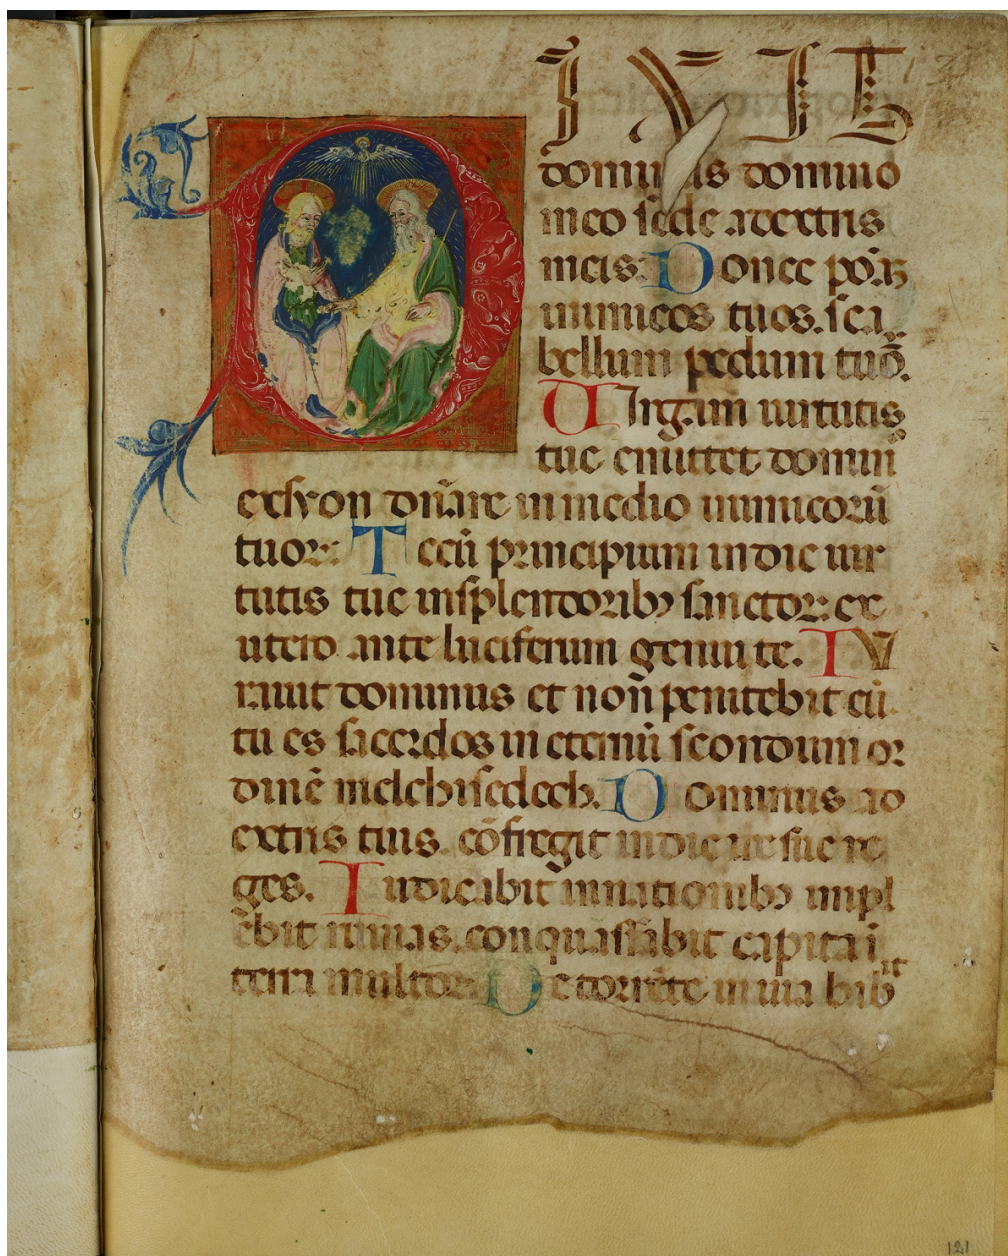 IXIT
dominus domino
meo sede adextris
meis: Donec põaʒ
inimicos tuos. sca
bellum pedum tuõ.
UIrgam uirtutis
tue emittet domin
exsyon dñare in medio inimicorũ
tuor: Tecũ principium in die uir
tutis tue insplendoribꝰ sanctor: ex
utero ante luciferum genui te. IV
rauit dominus et non penitebit eũ
tu es sacerdos in eternũ scondum or
dinẽ melchisedech. Dominus ad
extris tuis. cõfregit in die ire sue re
ges. Iudicabit innationibꝰ impl
ebit ruinas. conquassabit capita ĩ
terra multor: De torrẽte in uia bibit
121